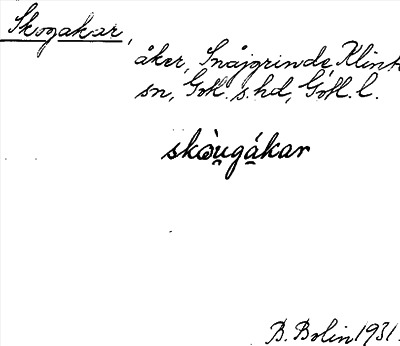 Skogakar,
åker, Snåjgrinde, Klinte
sn, Gotl. s. hd, Gotl. l.
skɷ̀u̯gákar
B. Bolin 1931.